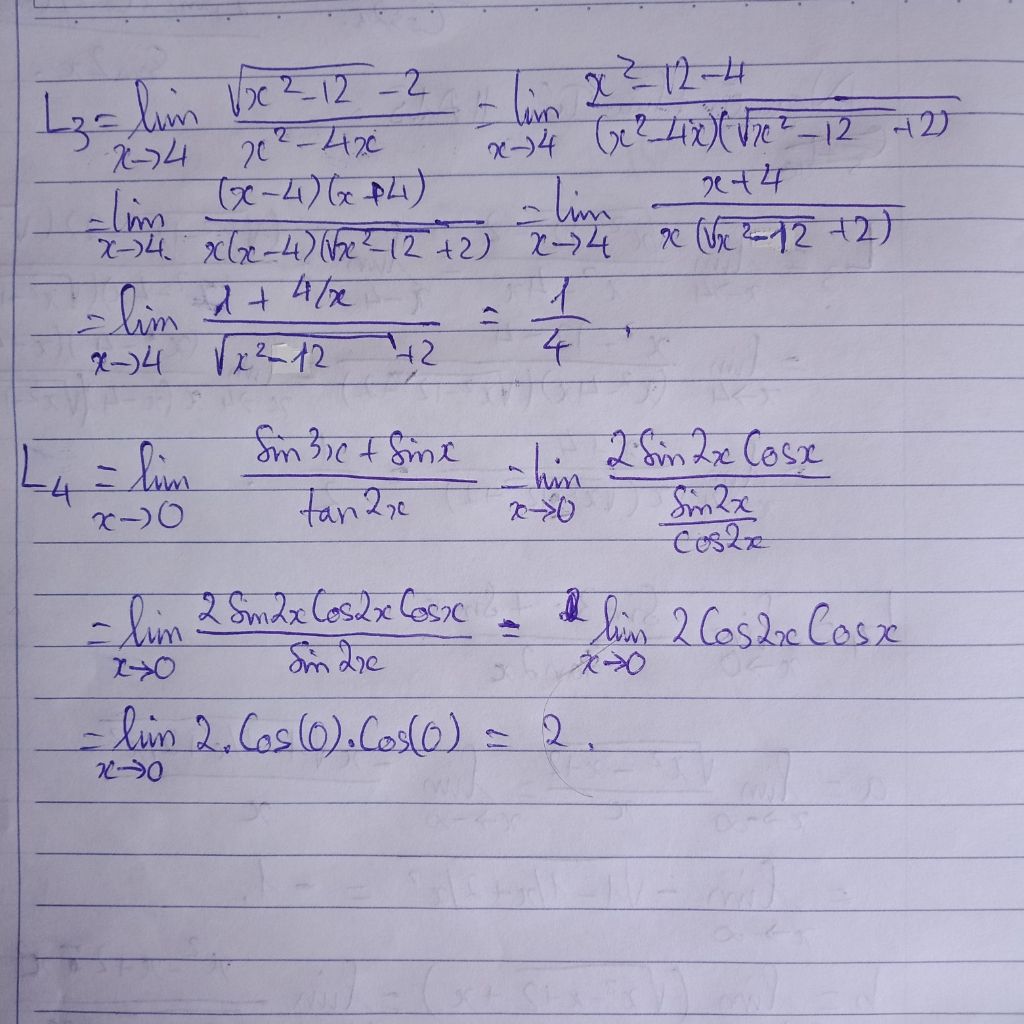 L₃ = lim x→4 (√(x²-12) - 2)/(x²-4x) = lim x→4 (x²-12-4)/((x²-4x)(√(x²-12) +2))
= lim x→4 ((x-4)(x+4))/(x(x-4)(√(x²-12) +2)) = lim x→4 (x+4)/(x(√(x²-12) +2))
= lim x→4 (1 + 4/x)/(√(x²-12) +2) = 1/4 .
L₄ = lim x→0 (Sin3x + Sinx)/(tan2x) = lim x→0 (2 Sin2x Cosx)/(Sin2x/Cos2x)
= lim x→0 (2 Sin2x Cos2x Cosx)/(Sin2x) = lim x→0 2 Cos2x Cosx
= lim x→0 2. Cos(0). Cos(0) = 2 .